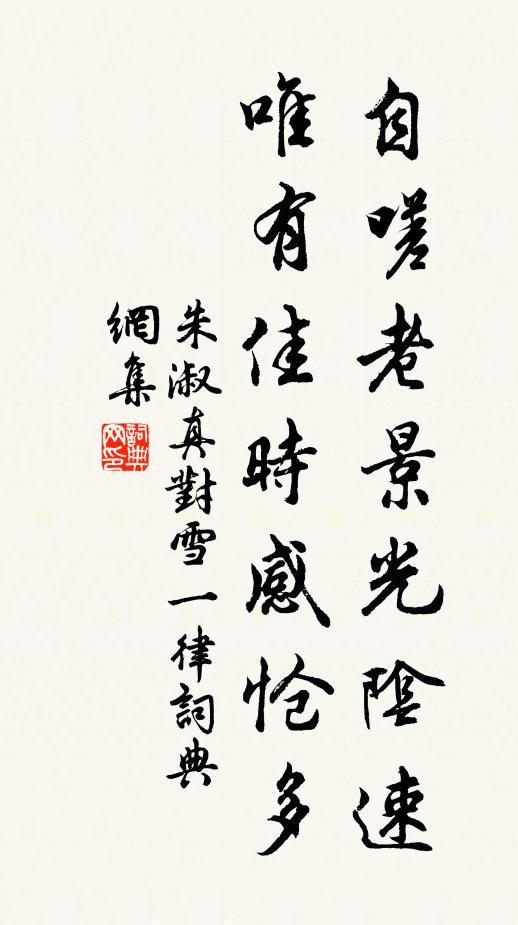 自嗟老景光陰速
唯有佳時感怆多
朱淑真對雪一律詞典
網集
詞典網印